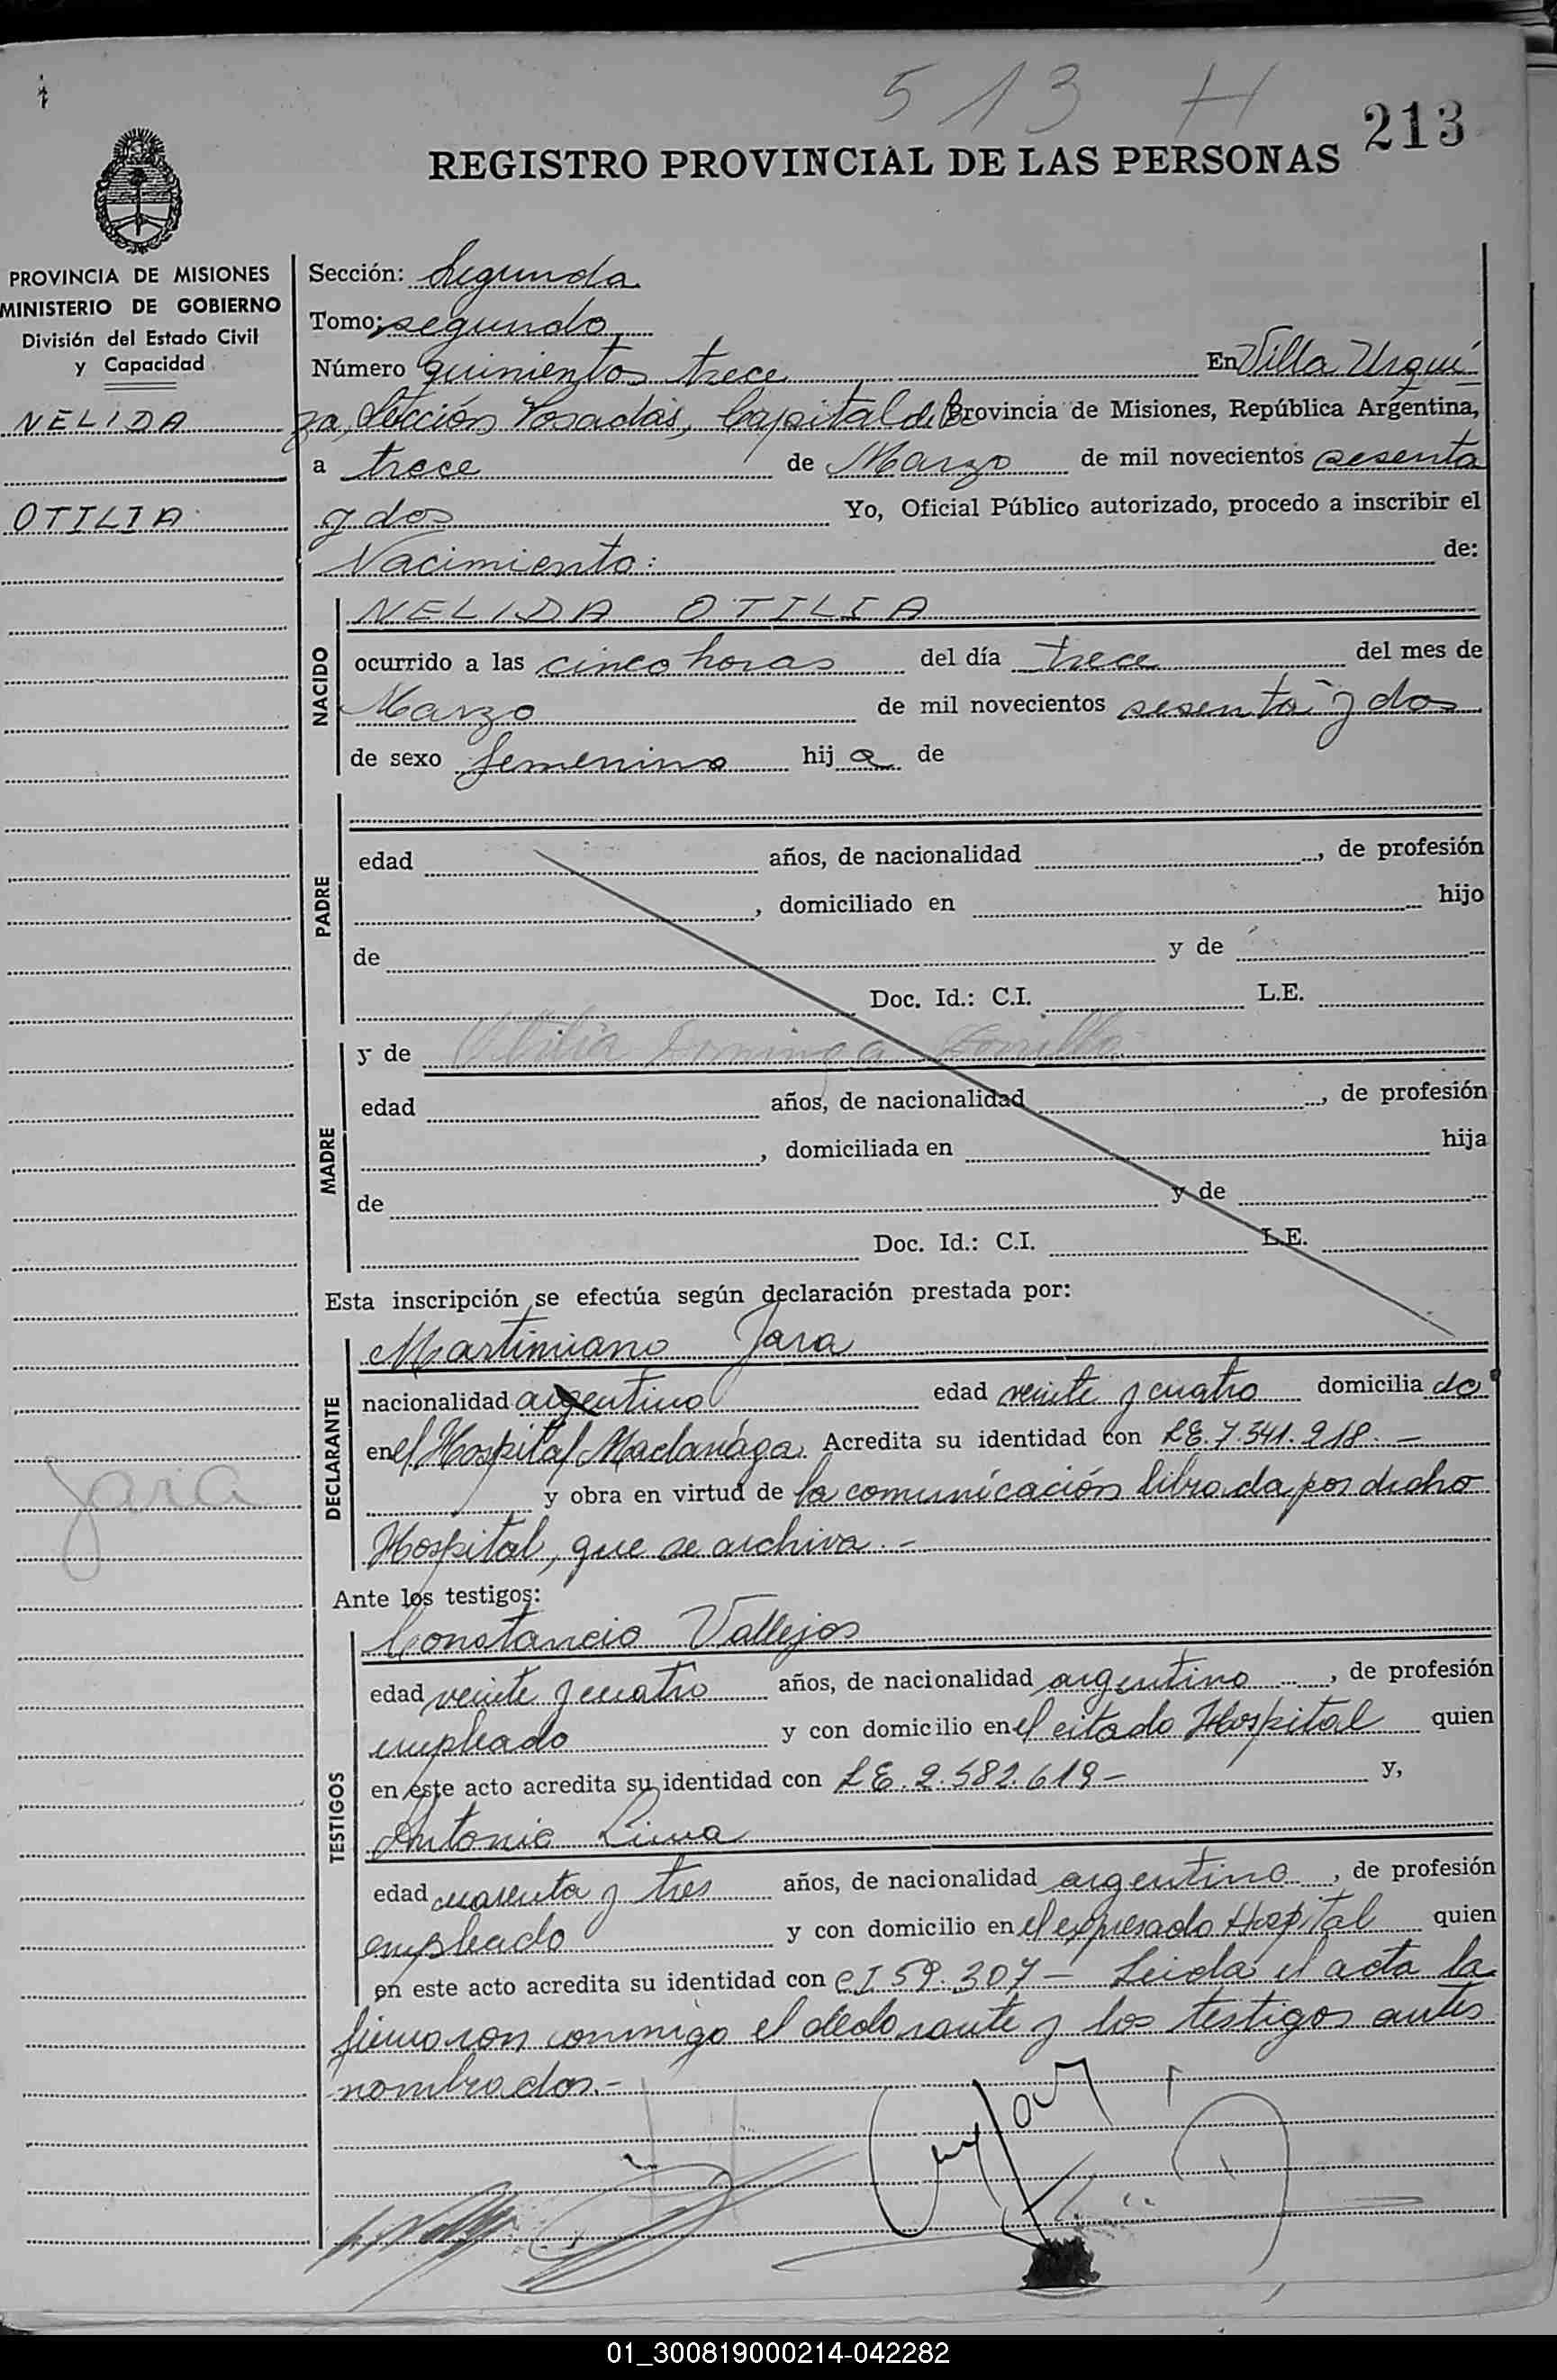 513 H
213
REGISTRO PROVINCIAL DE LAS PERSONAS
PROVINCIA DE MISIONES
MINISTERIO DE GOBIERNO
División del Estado Civil
y Capacidad
NELIDA
OTILIA
Jara
Sección: Segunda
Tomo: segundo
Número quinientos trece En Villa Urquí
za, Sección Posadas, Capital de Provincia de Misiones, República Argentina,
a trece de Marzo de mil novecientos sesenta
y dos Yo, Oficial Público autorizado, procedo a inscribir el
Nacimiento: de:
NACIDO
NELIDA OTILIA
ocurrido a las cinco horas del día trece del mes de
Marzo de mil novecientos sesenta y dos
de sexo femenino hija de
PADRE
edad años, de nacionalidad , de profesión
, domiciliado en hijo
de y de
Doc. Id.: C.I. L.E.
MADRE
y de Otilia Dominga
edad años, de nacionalidad , de profesión
, domiciliada en hija
de y de
Doc. Id.: C.I. L.E.
Esta inscripción se efectúa según declaración prestada por:
DECLARANTE
Martimiano Jara
nacionalidad argentino edad veinte y cuatro domicilia do
en el Hospital Madariaga. Acredita su identidad con LE. 7.341.218. —
y obra en virtud de la comunicación librada por dicho
Hospital, que se archiva. -
Ante los testigos:
TESTIGOS
Constancio Vallejos
edad veinte y cuatro años, de nacionalidad argentino, de profesión
empleado y con domicilio en el citado Hospital quien
en este acto acredita su identidad con LE. 2.582.619 - y,
Antonio Lima
edad cuarenta y tres años, de nacionalidad argentino, de profesión
empleado y con domicilio en el expresado Hospital quien
en este acto acredita su identidad con CI 59.307 — Leída el acta la
firmaron conmigo el declarante y los testigos antes
nombrados.-
01_300819000214-042282